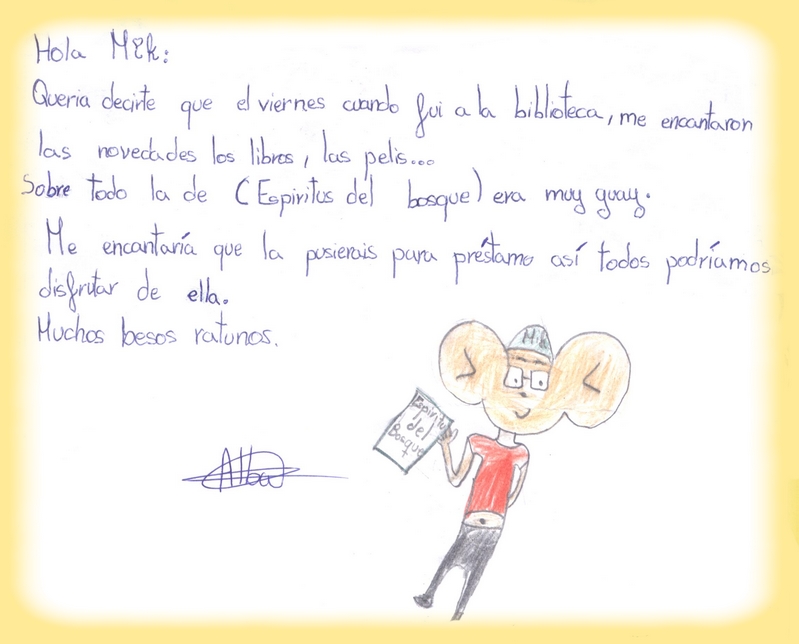 Hola Mik:
Queria decirte que el viernes cuando fui a la biblioteca, me encantaron
las novedades los libros, las pelis...
Sobre todo la de (Espiritus del bosque) era muy guay.
Me encantaría que la pusierais para préstamo así todos podríamos
disfrutar de ella.
Muchos besos ratunos.
Mik
Espiritu
del
Bosque
Alba